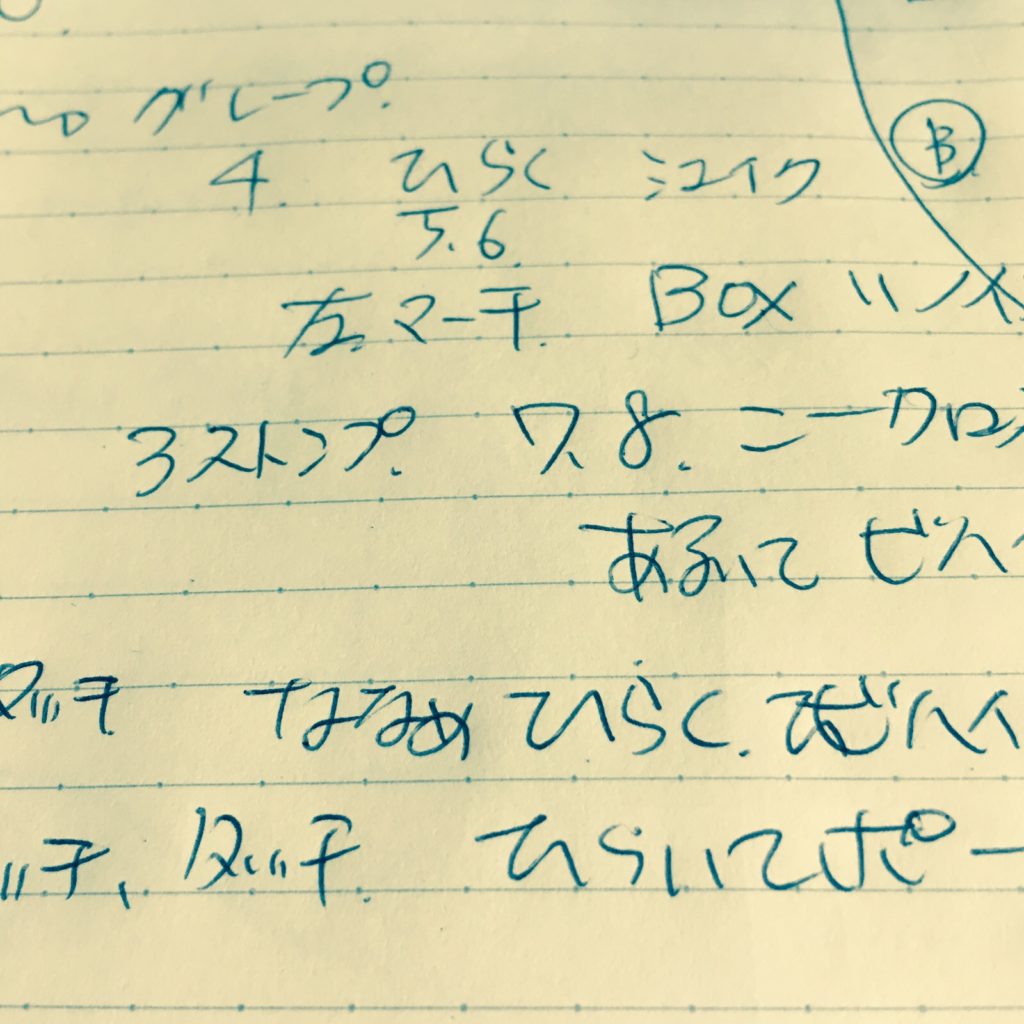 グループ.
Ⓑ
4 ひらく シェイク
5.6.
左マーチ. Box
3ストンプ. 7.8. ニークロス
あるいて
タッチ ななめ ひらく.
ッチ、タッチ. ひらいてポー